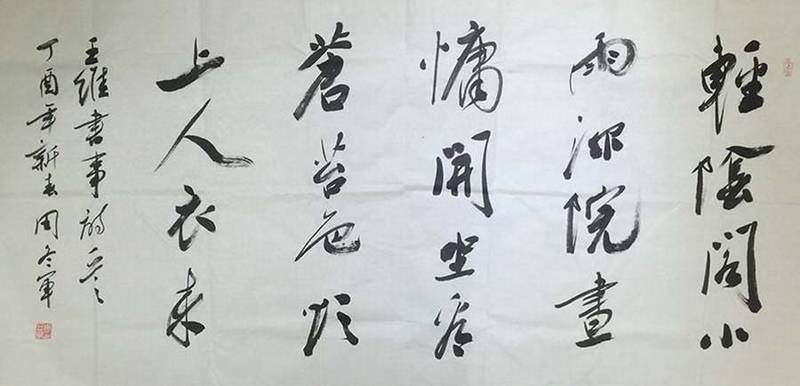 輕陰閣小
雨深院晝
慵開坐看
蒼苔色欲
上人衣来
王維書事詩
丁酉年新春周冬軍